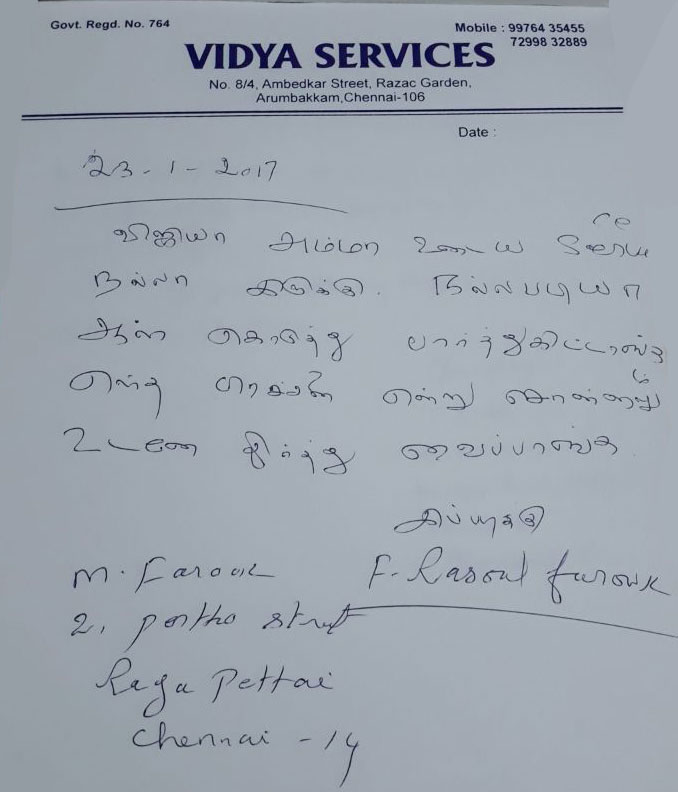 Govt. Regd. No. 764
Mobile : 99764 35455
72998 32889
VIDYA SERVICES
No. 8/4, Ambedkar Street, Razac Garden,
Arumbakkam,Chennai-106
Date :
23-1-2017
விஜியா அம்மா உடைய Service
நல்லா இருக்கு. நல்லபடியா
ஆள் கொடுத்து பார்த்துகிட்டாங்க
எந்த பிரச்சனை என்று சொன்னாலும்
உடனே தீர்த்து வைப்பாங்க.
இப்படிக்கு
M. Farook F. Rasoul farouk
2, street
Raya Pettai
Chennai - 14